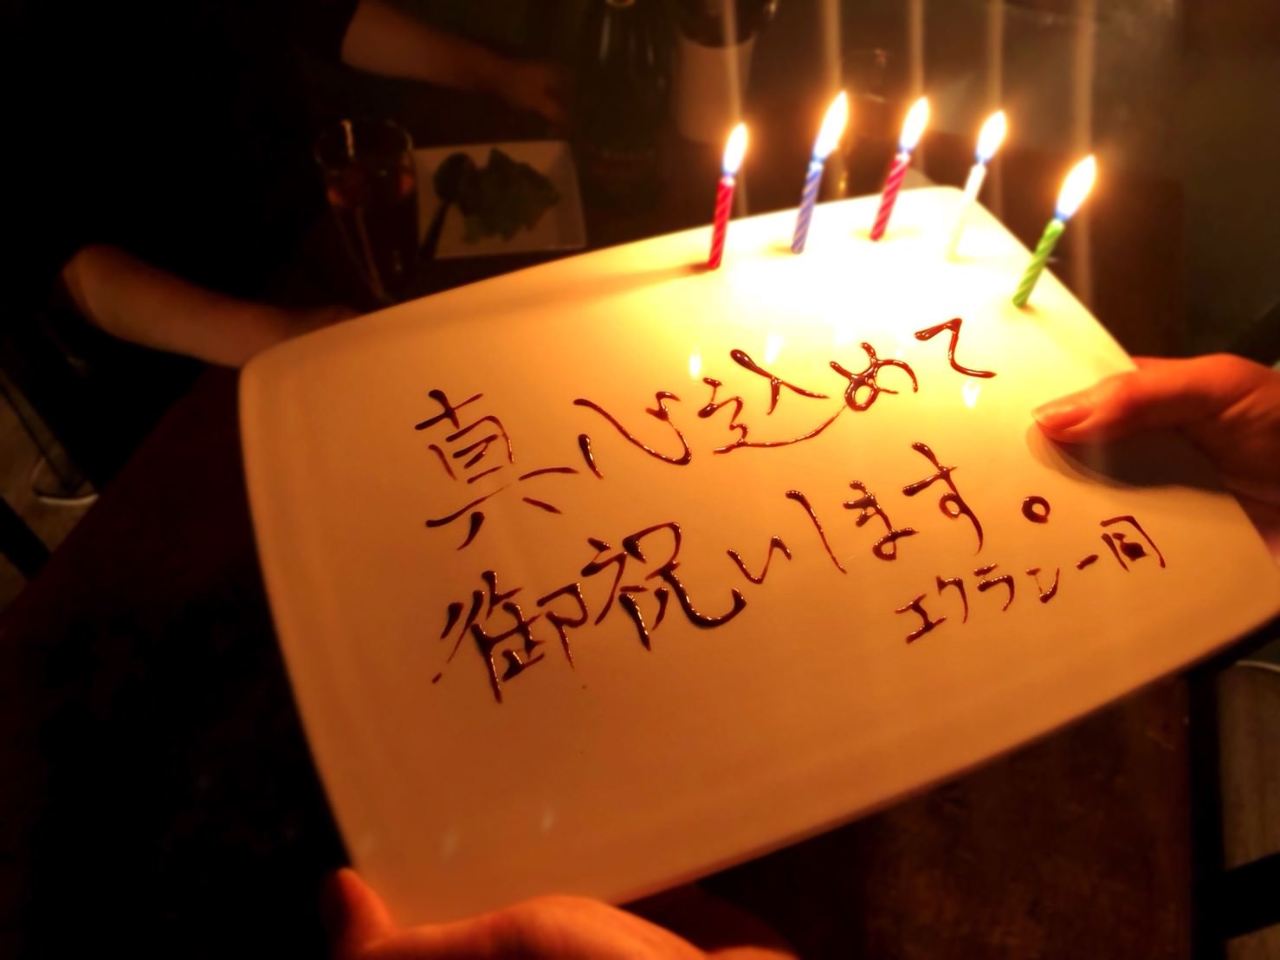 真心込めて
御祝いします。
エクラン一同